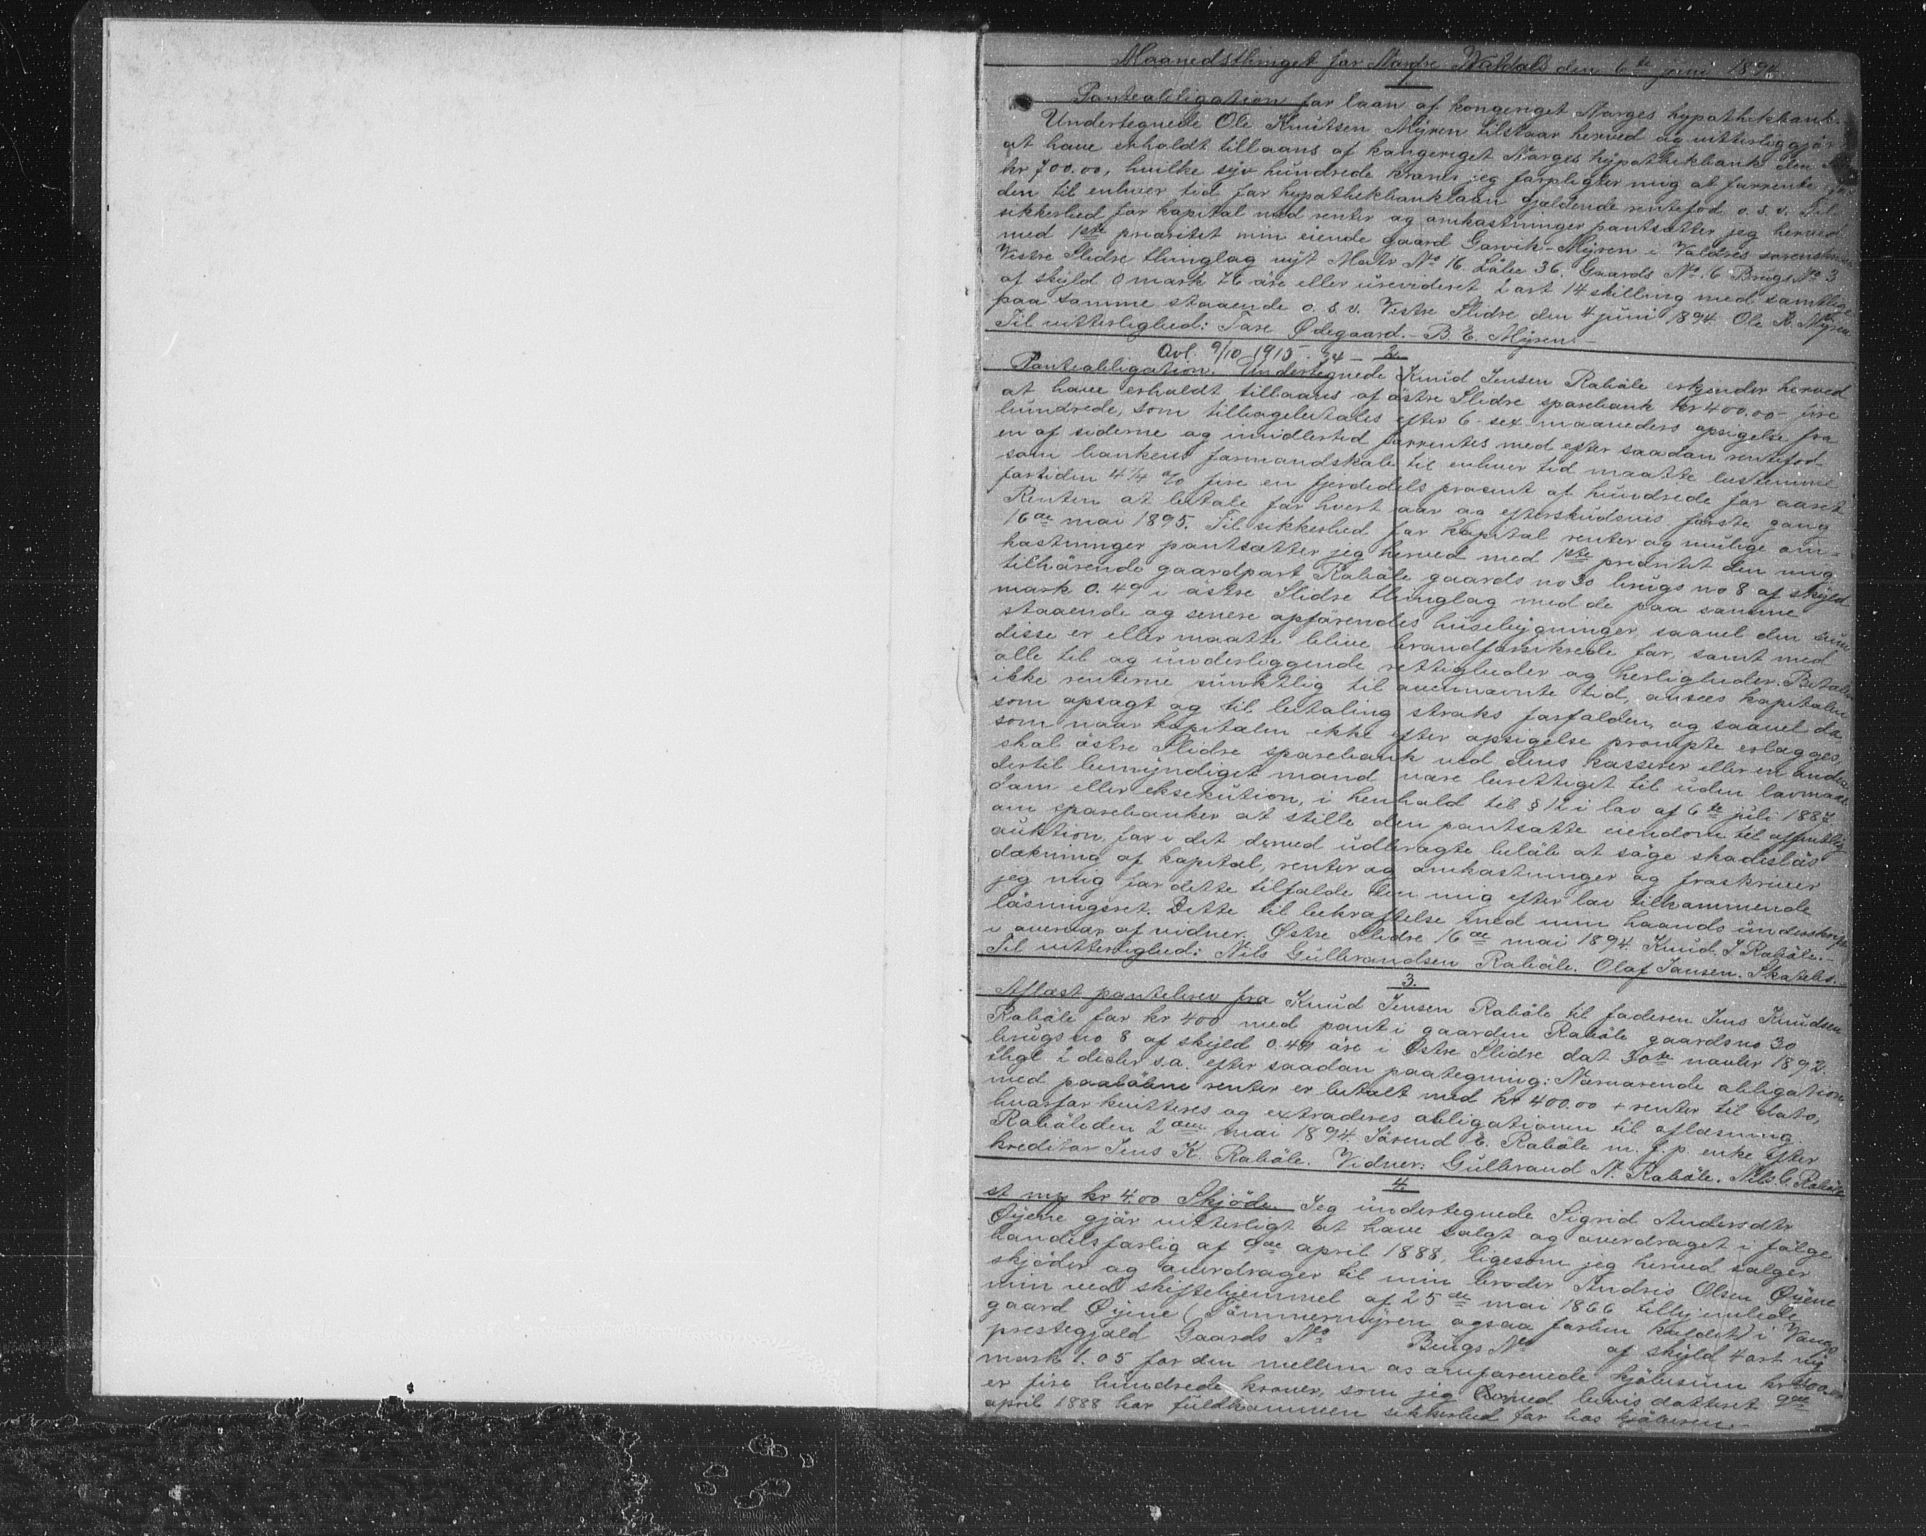 Maanedsthinget for Nordre Valdals den 6te juni 1894
1.
Panteobligation for laan af kongeriget Norges hypothekbank.
Undertegnede Ole Knutsen Myren tilstaar herved og vitterliggjør
at have erholdt tillaans af kongeriget Norges hypothekbank den
kr 700.00, hvilke syv hundrede kroner jeg forpligter mig at forrente
den til enhver tid for hypothekbanklaan gjældende rentefod o.s.v. Til
sikkerhed for kapital med renter og omkostninger pantsætter jeg herved
med 1ste prioritet min eiende gaard Garvik-Myren i Valdres sorenskriveri
Vestre Slidre thinglag nyt Matr No 16 Løbe 36. Gaards No 6 Brugs No 3
af skyld 0 mark 76 øre eller urevideret 2 ort 14 skilling med samtlige
paa samme staaende o.s.v. Vestre Slidre den 4 juni 1894. Ole K. Myren
Til vitterlighed: Tore Ødegaard. B. E. Myren.
Avl. 9/10 1915. 34 - 2.
Panteobligation. Undertegnede Knud Jensen Rabøle erkjender herved
at have erholdt tillaans af østre Slidre sparebank kr 400.00 - fire
hundrede, som tilbagebetales efter 6 - sex maaneders opsigelse fra
en af siderne og imidlertid forrentes med efter saadan rentefod
som bankens formandskab til enhver tid maatte bestemme
fortiden 4 1/4 % fire en fjerdedels procent af hundrede for aaret
Renten at betale for hvert aar og efterskudsvis første gang
16de mai 1895. Til sikkerhed for kapital renter og mulige om-
kostninger pantsætter jeg herved med 1ste prioritet den mig
tilhørende gaardpart Rabøle gaards no 30 brugs no 8 af skyld
mark 0.49 i østre Slidre thinglag med de paa samme
staaende og senere opførendes husebygninger, saavel den sum
disse er eller maatte blive brandforsikrede for, samt med
alle til og underliggende rettigheder og herligheder. Betales
ikke renterne punktlig til ovennævnte tid, ansees kapitalen
som opsagt og til betaling straks forfalden, og saavel da
som naar kapitalen ikke efter opsigelse prompte erlægges,
skal østre Slidre sparebank ved dens kasserer eller en anden
dertil bemyndiget mand være berettiget til uden lovmaal
dom eller eksekution, i henhold til § 12 i lov af 6te juli 1887
om sparebanker at stille den pantsatte eiendom til offentlig
auktion for i det derved udbragte beløb at søge skadesløs
dækning af kapital, renter og omkostninger og fraskriver
jeg mig for dette tilfælde den mig efter lov tilkommende
løsningsret. Dette til bekræftelse med min haands underskrift
i overvær af vidner. Østre Slidre 16de mai 1894. Knud J Rabøle.
Til vitterlighed: Nils Gulbrandsen Rabøle. Olaf Jansen. Skatebo.
3.
Aflæst pantebrev fra Knud Jensen Rabøle til faderen Jens Knudsen
Rabøle for kr 400 med pant i gaarden Rabøle gaardsno 30
brugsno 8 af skyld 0.49 øre i Østre Slidre dat 30te novbr 1892
thgl 2 decbr s.a. efter saadan paategning: Nærværende obligation
med paaløbne renter er betalt med kr 400.00 + renter til dato,
hvorfor kvitteres og extraderes obligationen til aflæsning.
Rabøle den 2den mai 1894. Jørend E. Rabøle m. f. p. enke efter
kreditor Jens K. Rabøle. Vidner: Gulbrand N. Rabøle. Nils G. Rabøle
4.
st my kr 4.00 Skjøde. Jeg undertegnede Sigrid Andersdtr
Øyene gjør vitterligt at have solgt og overdraget i følge
handelsforlig af 9de april 1888, ligesom jeg herved sælger
skjøder og overdrager til min broder Andris Olsen Øyene
min ved skiftehjemmel af 25de mai 1866 tilhjemlede
gaard Øyene (Tømmermyren ogsaa forhen kaldet) i Vang
prestegjæld Gaards No Brugs No af skyld 4 ort ny
mark 1.05 for den mellem os omforenede kjøbesum kr 400.00
er fire hundrede kroner, som jeg ved bevis datteret 9de
april 1888 har fuldkommen sikkerhed for hos kjøberen.